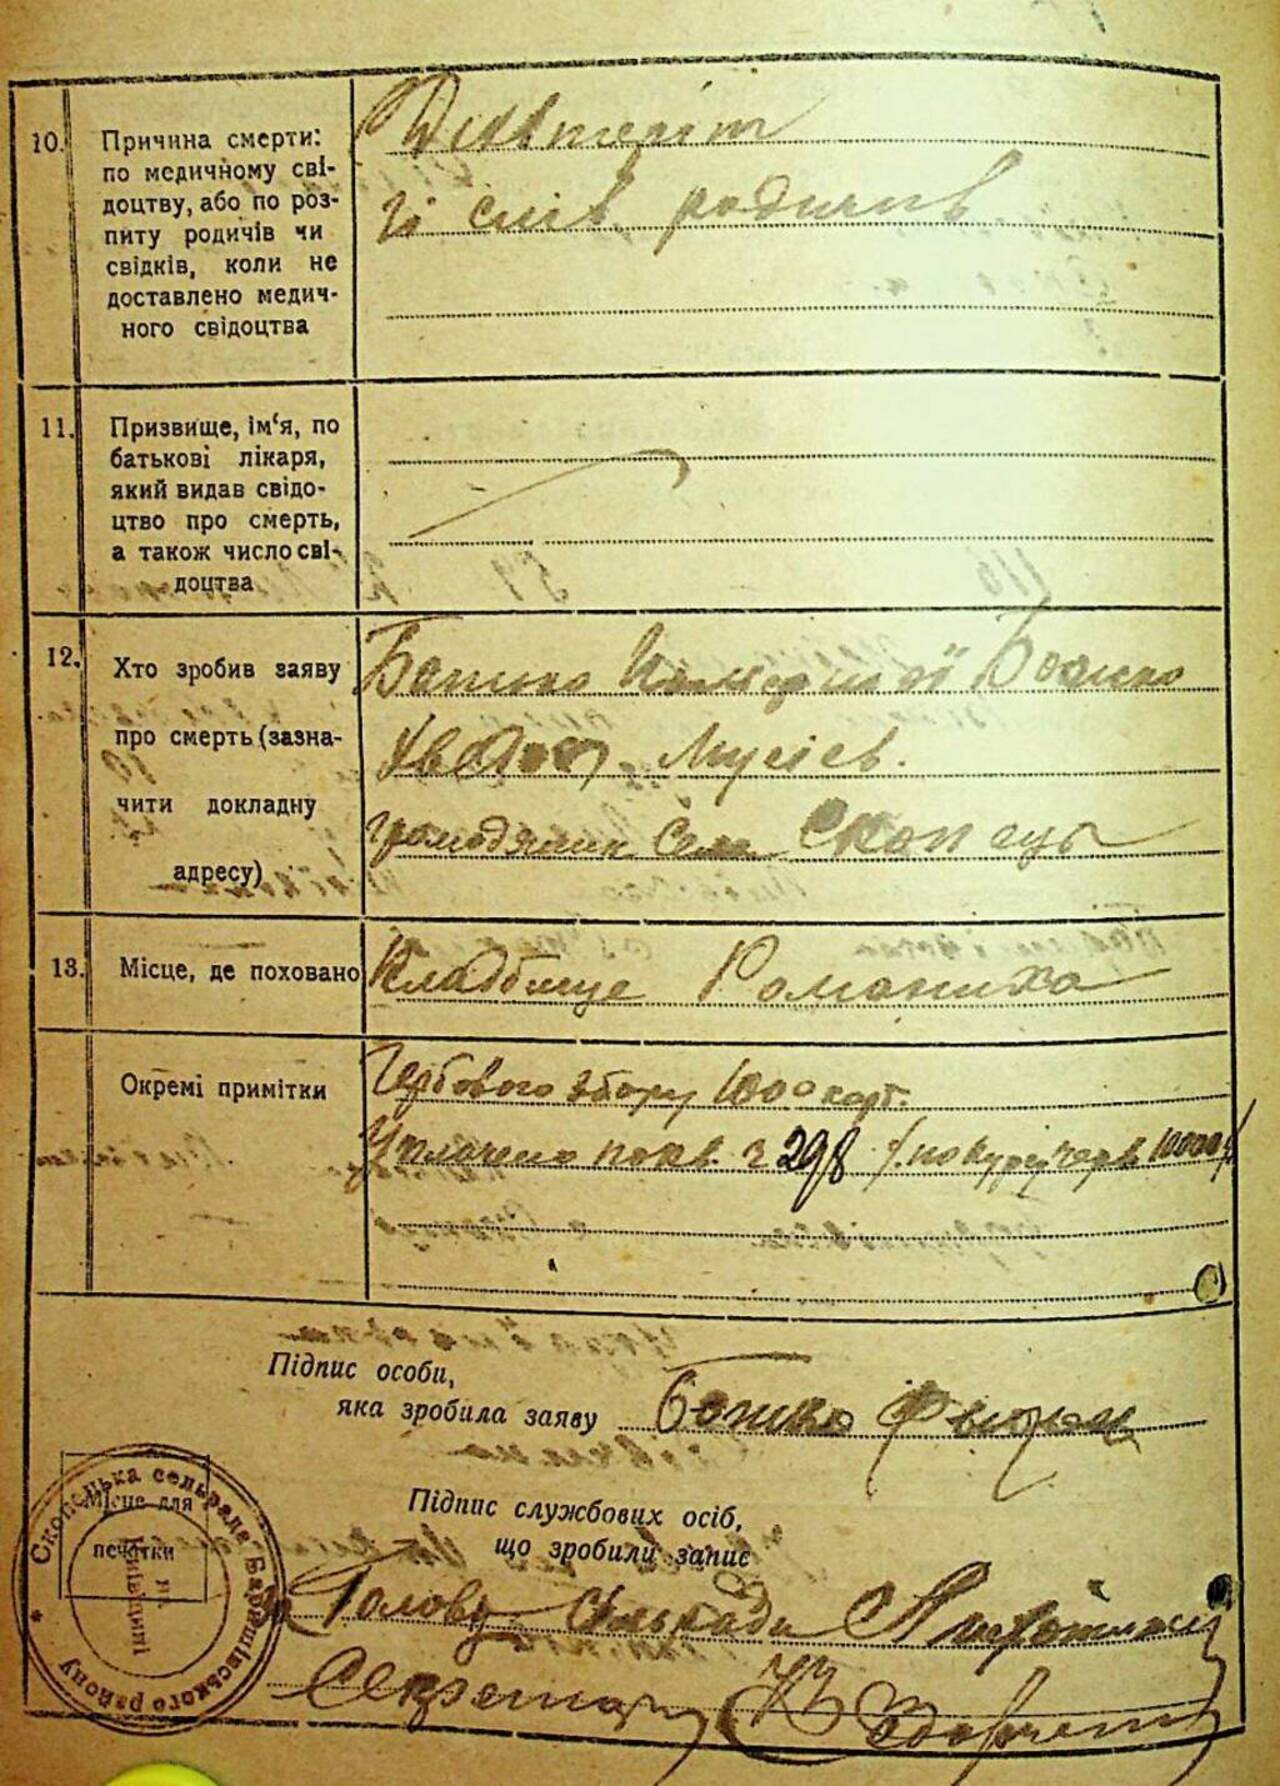 10. Причина смерти:
по медичному сві-
доцтву, або по роз-
питу родичів чи
свідків, коли не
доставлено медич-
ного свідоцтва
зі слів родичів
11. Призвище, ім'я, по
батькові лікаря,
який видав свідо-
цтво про смерть,
а також число сві-
доцтва
12. Хто зробив заяву
про смерть (зазна-
чити докладну
адресу)
Батько Божко
Мусіев.
громодянин села Скопець
13. Місце, де поховано
Кладбище Романиха
Окремі примітки
Гербового збору 1000 карб.
Уплачено по кв. 298 по курсу черв. 10000
Підпис особи,
яка зробила заяву Божко
Місце для
печатки
Скопецька сельрада Баришівського району
на Київщині
Підпис службових осіб,
що зробили запис
Голову Сельради
Секретарь